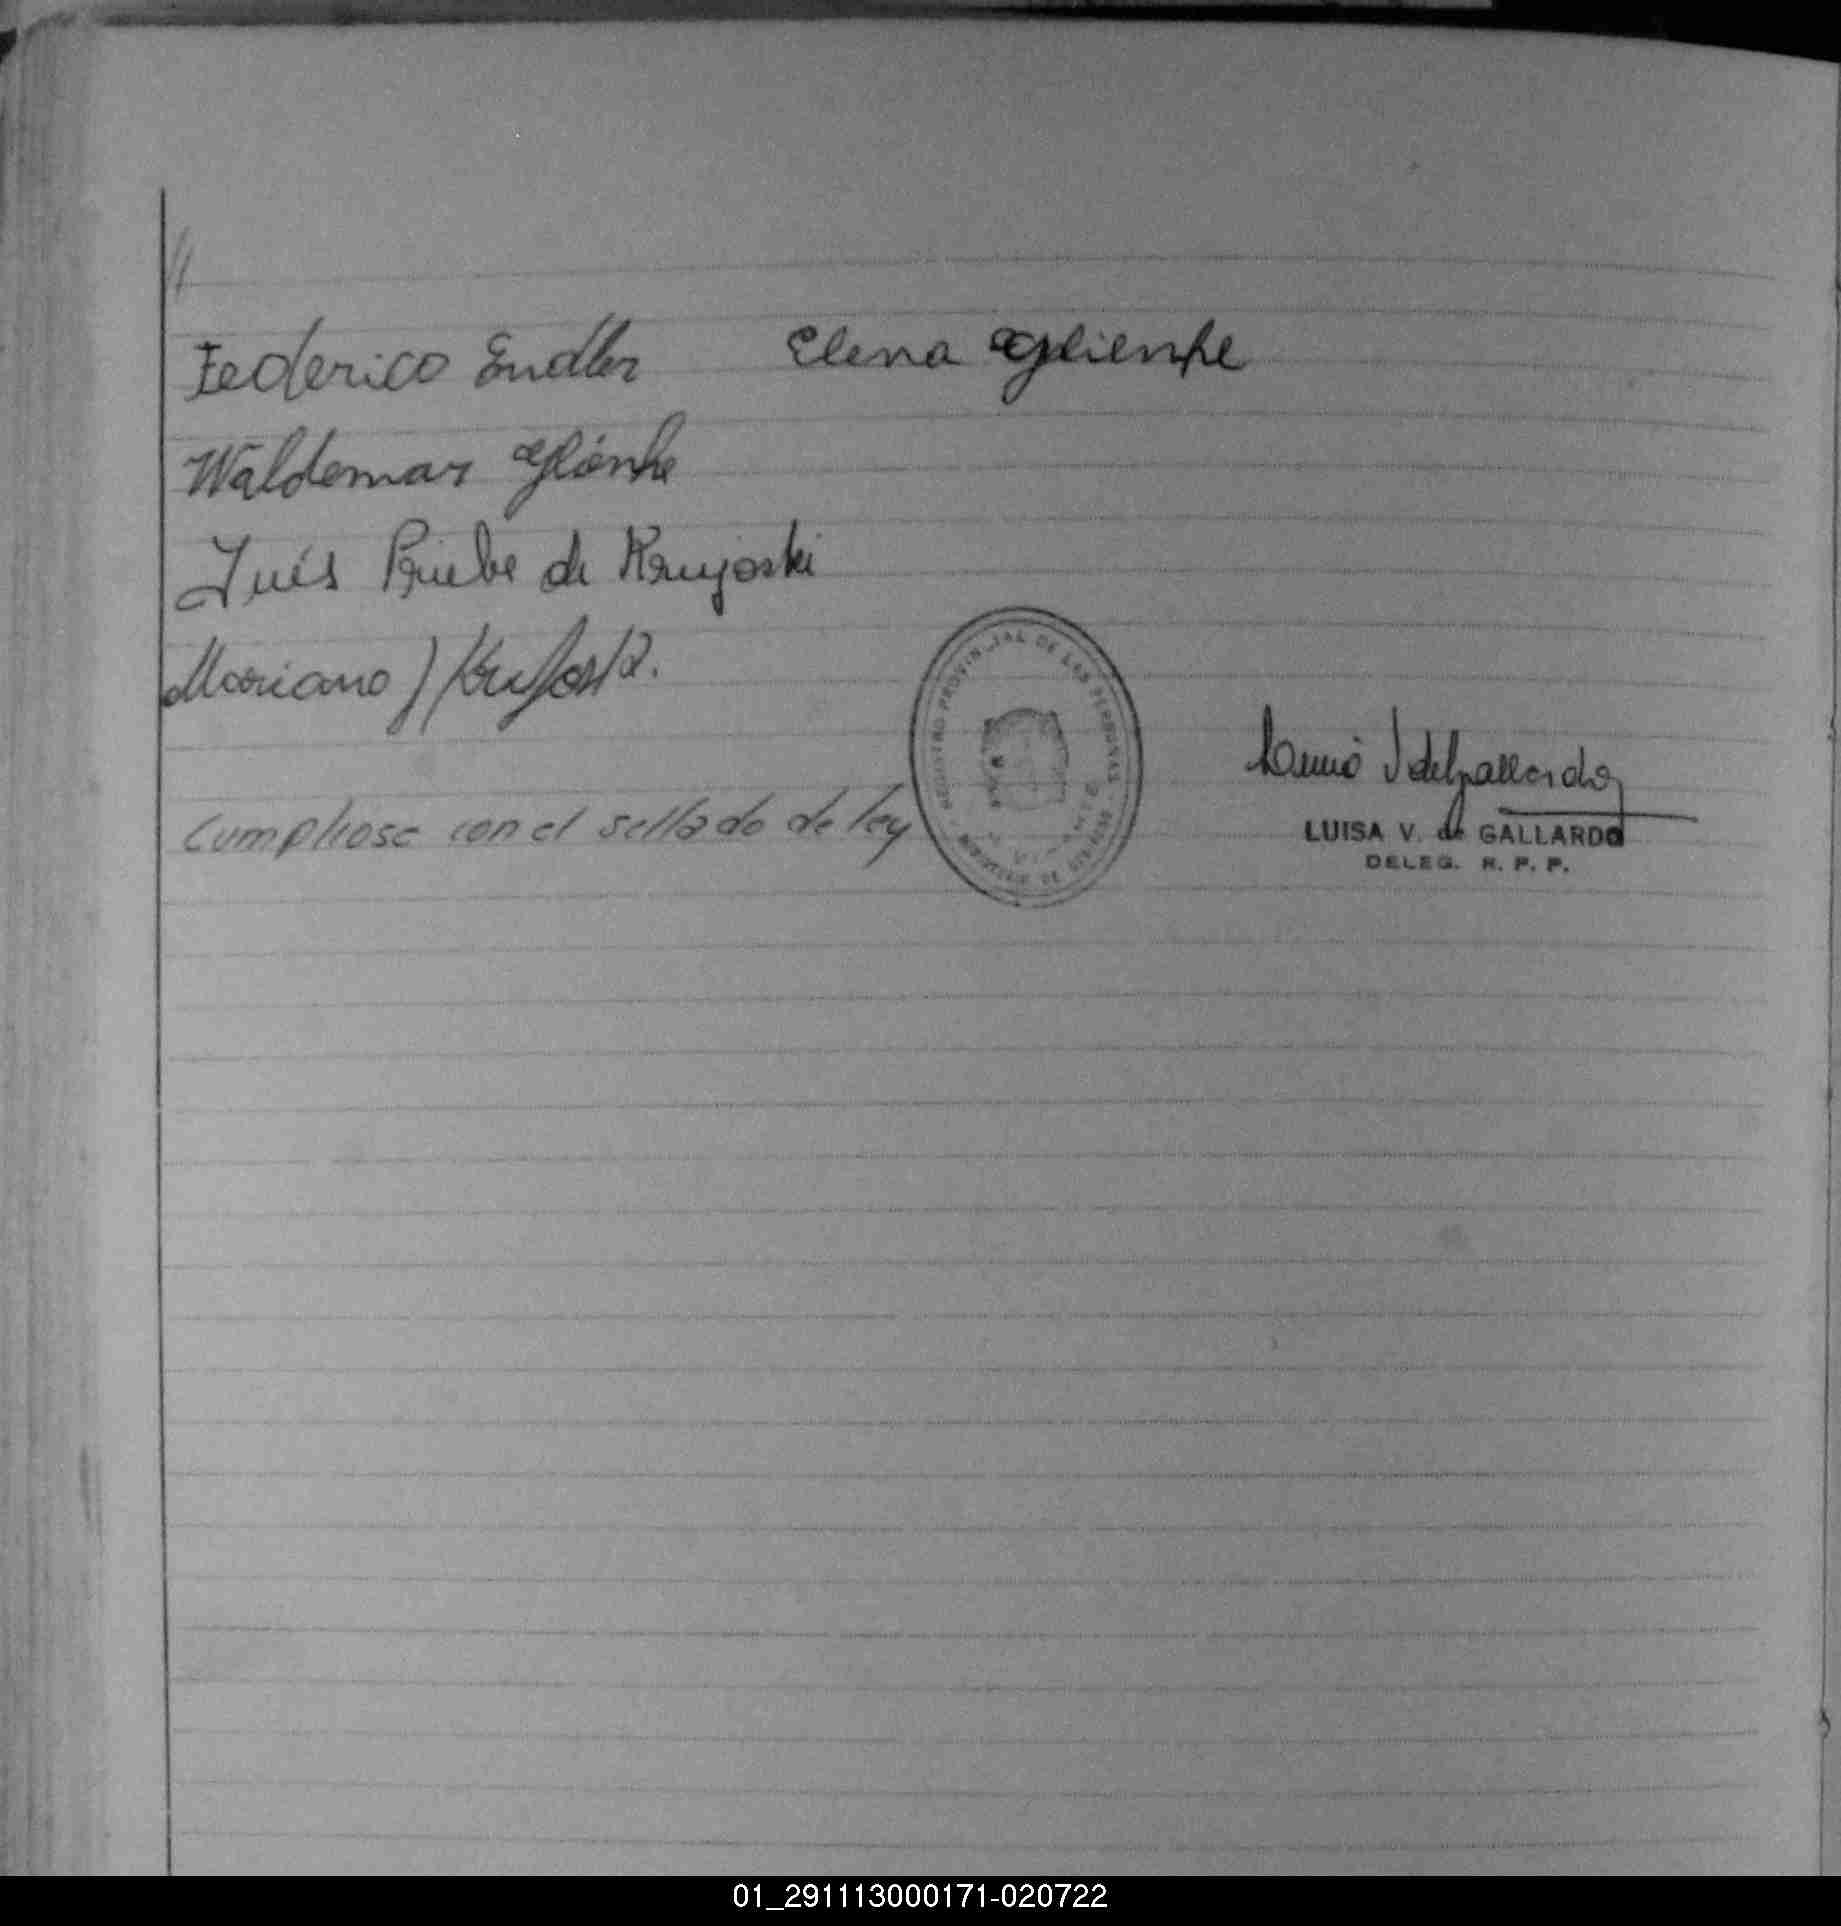 //
Federico Endler Elena Glienke
Waldemar Glienke
Inés Priebe de Krujoski
Mariano J Krujoski.
REGISTRO PROVINCIAL DE LAS PERSONAS
MISIONES
LUISA V. de GALLARDO
DELEG. R. P. P.
Cumpliose con el sellado de ley
01_291113000171-020722